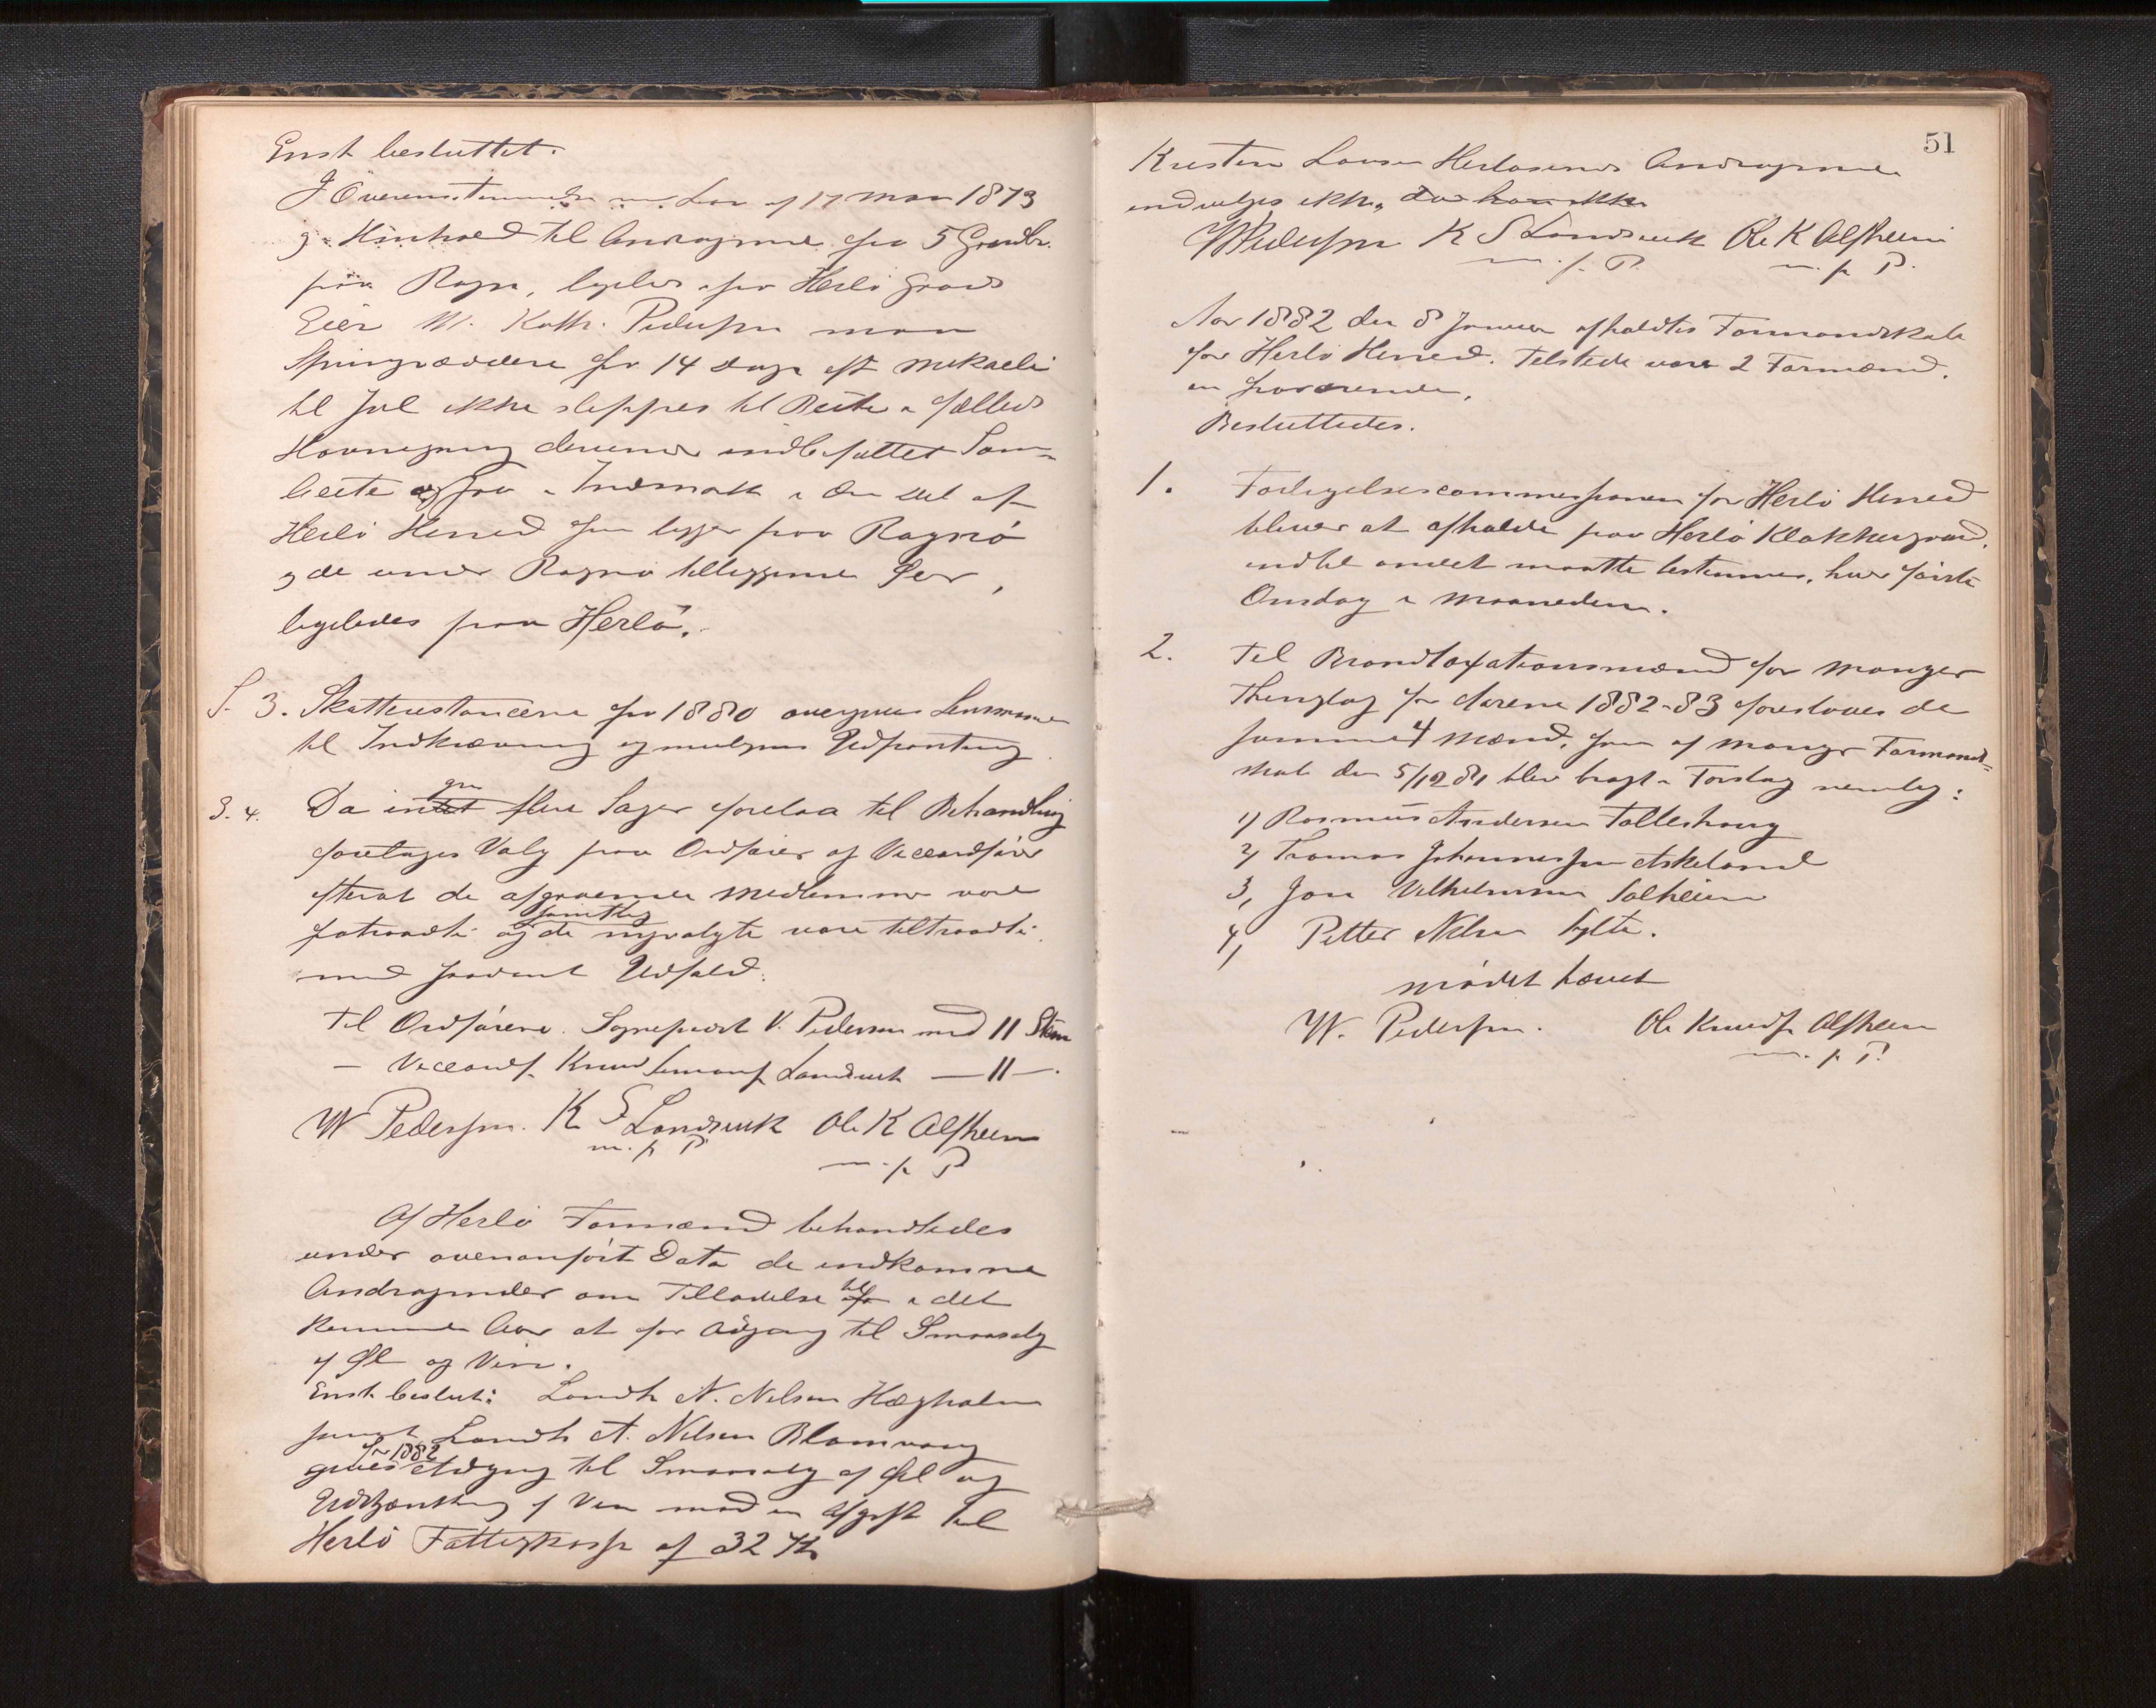 Enst besluttet.
I Overensstemmelse m. Lov af 17 Mars 1873
og i Henhold til Andragende fra 5 Grundbr.
paa Rognø, ligeledes fra Herlö Gaards
Eier W. Kath. Pedersen maa
Springvæddere fra 14 Dage eft Mikaeli
til Jul ikke slippes til Beite i fælleds
Havnegang derunder indbefattet Sam-
beite ogsaa i Indmark i den Del af
Herlö Herred som ligger paa Rognø
og de under Rognø tilliggende Øer,
ligeledes paa Herlö.
S. 3. Skatterestancerne for 1880 overgives Lensmanden
til Indkrævning og muligens Udpantning.
S. 4. Da ingen flere Sager forelaa til Behandling
foretages Valg paa Ordfører og Viceordfører
efterat de afgaaende Medlemmer vare
fratraadte og samtlig de nyvalgte vare tiltraadte
med saadant Udfald:
Til Ordförere. Sognepræst W. Pedersen med 11 Stem
— Viceordf. Knud Simonss Landsvik — 11 —.
W Pederssen. K S Landsvik Ole K Alfheim
m. p. P. m. p. P
Af Herlö Formænd behandledes
under ovenanfört Dato de indkomne
Andragender om Tilladelse til i det
kommende Aar at faa Adgang til Smaasalg
af Øl og Vin.
Enst beslut: Landh. N. Nilsen Hægholm
samt Landh. A. Nilsen Blomvaag
gives for 1882 Adgang til Smaasalg af Øl og
Udskjænkning af Vin mod en Afgift til
Herlö Fattigkasse af 32 Kr
51
Kristen Larsen Herlösunds Andragende
indvilges ikke, da han ikke
W Pederssen K S Landsvik Ole K Alfheim
m. p. P. m. p. P.
Aar 1882 den 8 Januar afholdtes Formandskab
for Herlö Herred. Tilstede vare 2 Formænd.
en fraværende.
Besluttedes.
1. Forligelsescommissionen for Herlö Herred
bliver at afholde paa Herlö Klokkergaard,
indtil andet maatte bestemmes, hver förste
Onsdag i Maaneden.
2. Til Brandtaxationsmænd for Manger
Thinglag for Aarene 1882-83 foreslaaes de
samme 4 Mænd, som af Manger Formand-
skab den 5/12 81 blev bragt i Forslag nemlig:
1) Rasmus Andersen Tolleshaug
2) Thomas Johannessen Askeland
3, Jon Vilhelmsen Solheim
4, Petter Nilsen Sylta.
Mödet hævet
W. Pederssen. Ole Knudss Alfheim
m. p. P.